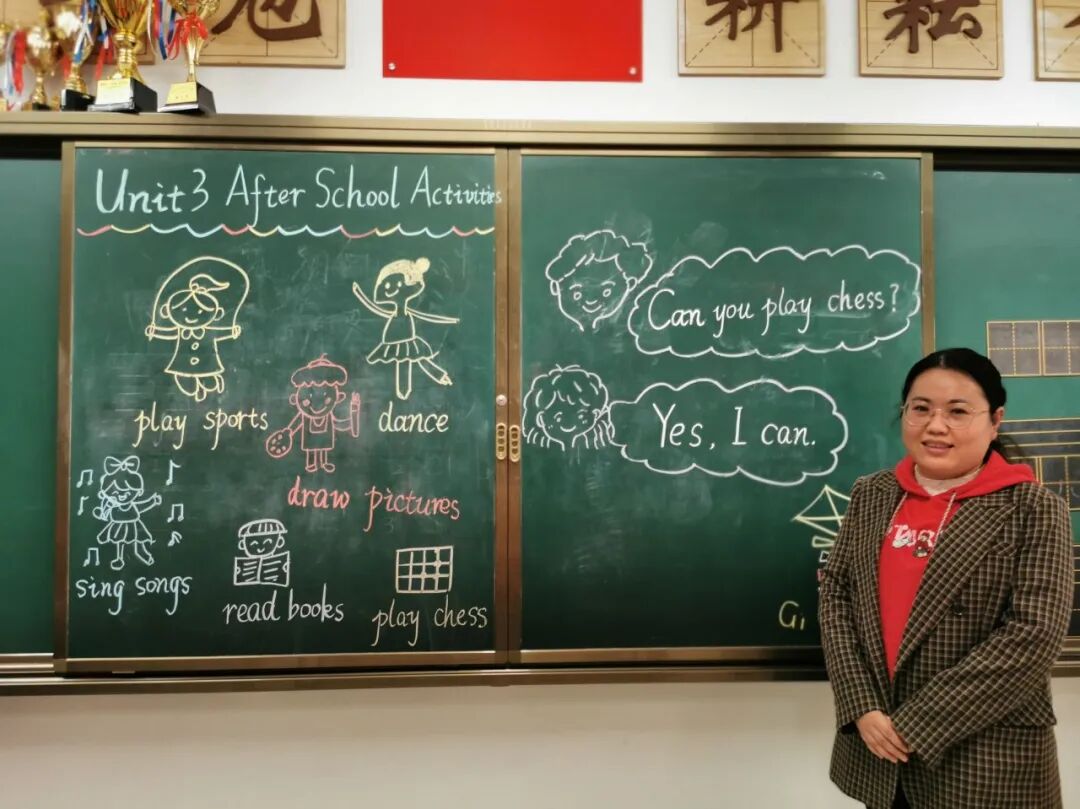 耘
Unit 3 After School Activities
play sports
dance
draw pictures
sing songs
read books
play chess
Can you play chess?
Yes, I can.